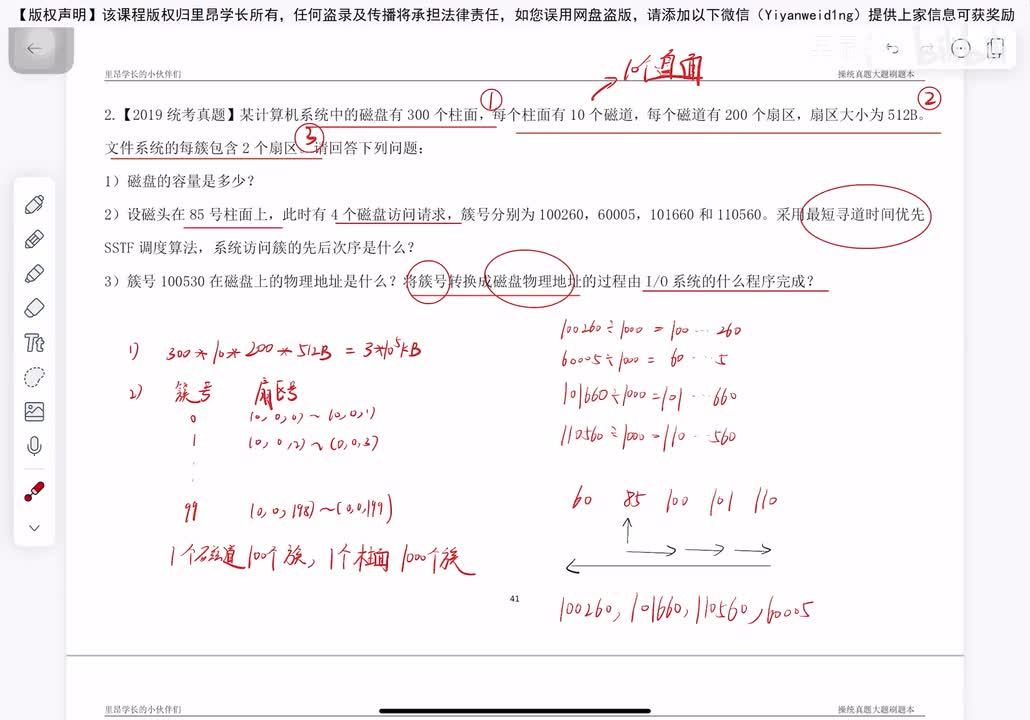 【版权声明】该课程版权归里昂学长所有，任何盗录及传播将承担法律责任，如您误用网盘盗版，请添加以下微信（Yiyanweid1ng）提供上家信息可获奖励
里昂学长的小伙伴们
操统真题大题刷题本
10个盘面
① ②
2.【2019 统考真题】某计算机系统中的磁盘有 300 个柱面，每个柱面有 10 个磁道，每个磁道有 200 个扇区，扇区大小为 512B。
③
文件系统的每簇包含 2 个扇区。请回答下列问题：
1）磁盘的容量是多少？
2）设磁头在 85 号柱面上，此时有 4 个磁盘访问请求，簇号分别为 100260，60005，101660 和 110560。采用最短寻道时间优先
SSTF 调度算法，系统访问簇的先后次序是什么？
3）簇号 100530 在磁盘上的物理地址是什么？将簇号转换成磁盘物理地址的过程由 I/O 系统的什么程序完成？
1) 300*10*200*512B = 3*10⁵KB
2) 簇号 扇区号
0 (0,0,0)~(0,0,1)
1 (0,0,2)~(0,0,3)
99 (0,0,198)~(0,0,199)
1个磁道100个簇，1个柱面1000个簇
100260÷1000=100…260
60005÷1000=60…5
101660÷1000=101…660
110560÷1000=110…560
60 85 100 101 110
100260, 101660, 110560, 60005
41
Tt
里昂学长的小伙伴们
操统真题大题刷题本